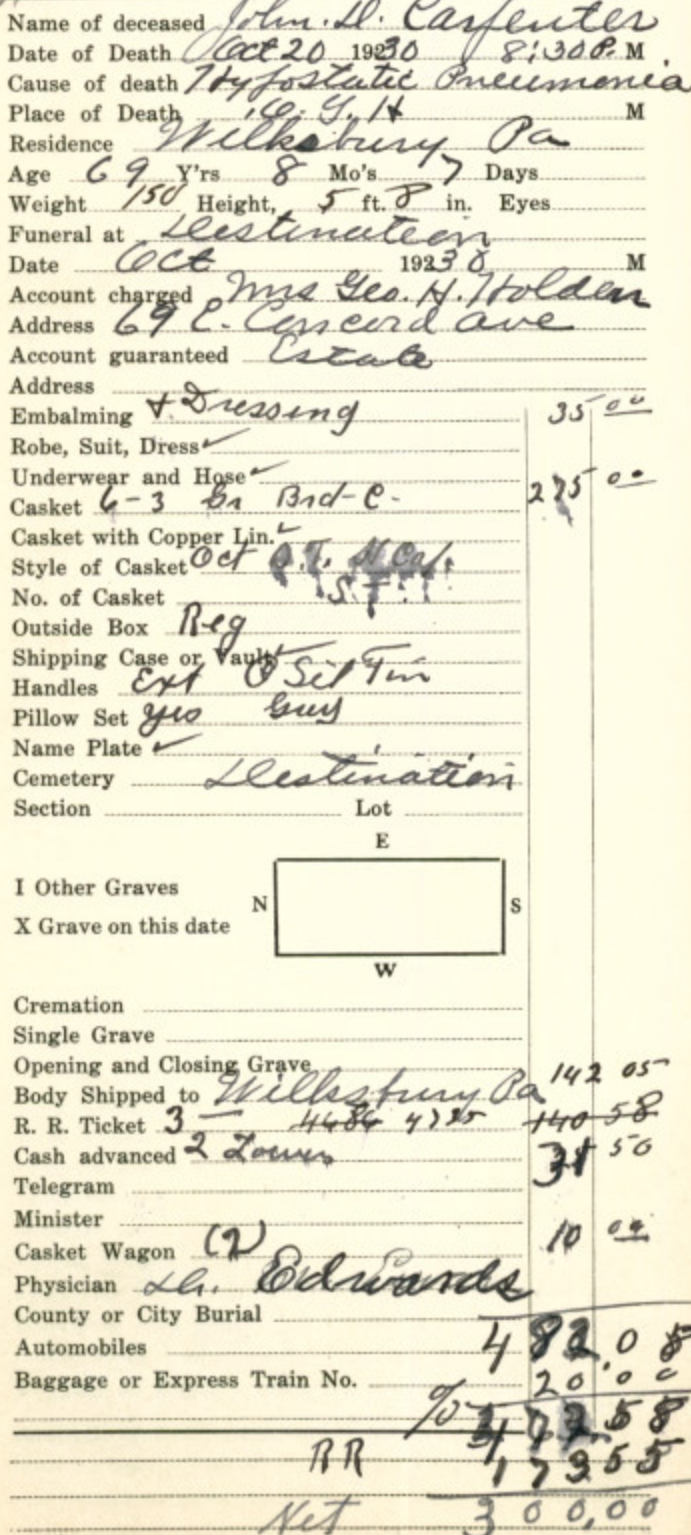 Name of deceased John. D. Carpenter
Date of Death Oct 20 1930 8:30 P. M
Cause of death Hypostatic Pneumonia
Place of Death O. G. H M
Residence Wilksbury Pa
Age 69 Y'rs 8 Mo's 7 Days
Weight 150 Height, 5 ft. 8 in. Eyes
Funeral at Destination
Date Oct 1930 M
Account charged Mrs Geo. H. Holden
Address 69 E. Concord ave
Account guaranteed Estate
Address
Embalming & Dressing 35 00
Robe, Suit, Dress ✓
Underwear and Hose ✓
Casket 6-3 Gr Brd-C- 275 00
Casket with Copper Lin. ✓
Style of Casket Oct
No. of Casket S.T.
Outside Box Reg
Shipping Case or Vault
Handles Ext Sil Tin
Pillow Set yes Guy
Name Plate ✓
Cemetery Destination
Section Lot
E
I Other Graves
N S
X Grave on this date
W
Cremation
Single Grave
Opening and Closing Grave
Body Shipped to Wilksbury Pa 142 05
R. R. Ticket 3 — 140 58
Cash advanced 2 50
Telegram
Minister
Casket Wagon (2) 10 00
Physician Dr. Edwards
County or City Burial
Automobiles 482.08
Baggage or Express Train No. 20.00
%
RR
Net 300,00